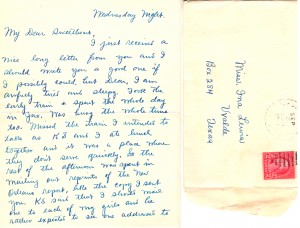 Wednesday Night.
My Dear Sweetheart,
I just received a
nice long letter from you and I
should write you a good one if
I possibly could, but dear, I am
awfully tired and sleepy. Took the
early train & spent the whole day
in Jax. Was busy the whole time
too. Missed the train I intended to
take as K3 and I ate lunch
together and it was a place where
they don't serve quickly. So the
rest of the afternoon was spent in
mailing out reprints of the New
Orleans report, like the copy I sent
you. K3 said that I should mail
one to each of my girls and he
radios expects to see one addressed to
Miss Ima Lewis
Box 284
Uvalde
Texas
SEP